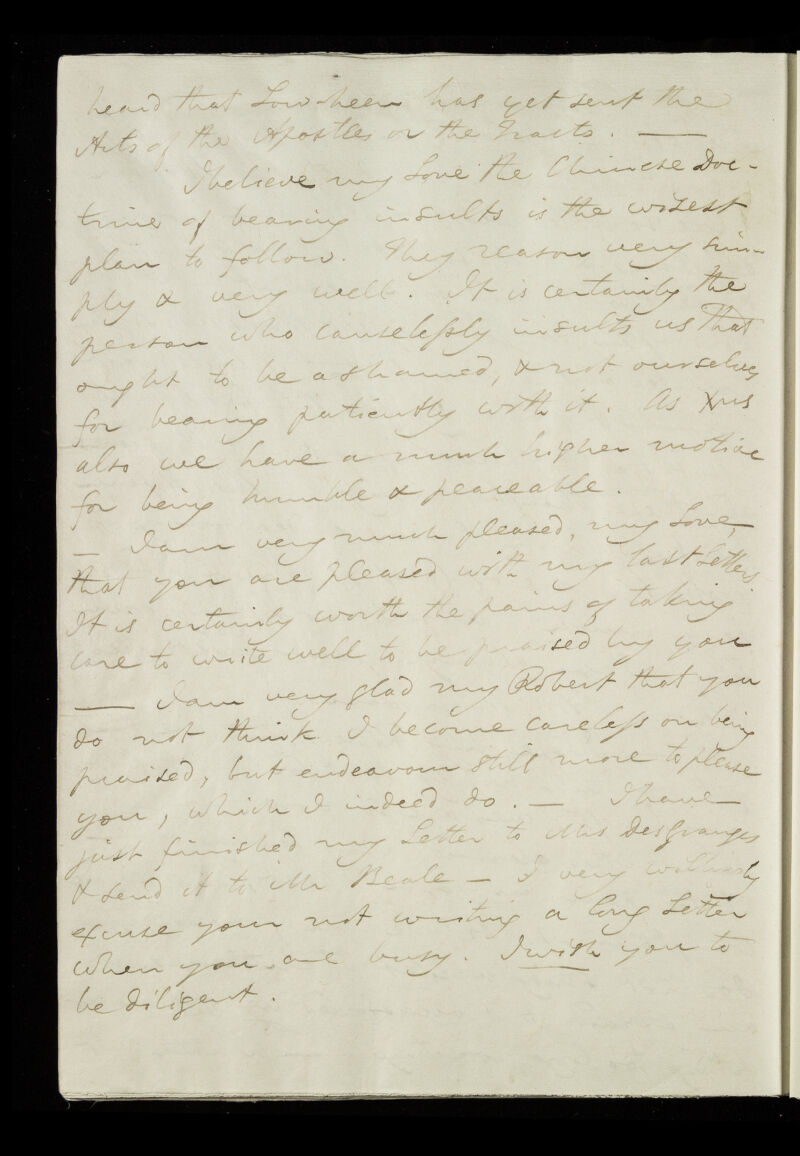 heard that Low-heen has yet sent the
Acts of the Apostles or the Tracts. —
I believe my Love the Chinese Doc-
trines of bearing insults is the wisest
plan to follow. They reason very sim-
ply & very well. It is certainly the
person who causelessly insults us that
ought to be ashamed, & not ourselves
for bearing patiently with it. As Xns
also we have a much higher motive
for being humble & peaceable.
— I am very much pleased, my Love,
that you are pleased with my last Letters
It is certainly worth the pains of taking
care to write well to be praised by you
— I am very glad my Robert that you
do not think I become careless on being
praised, but endeavour still more to please
you, which I indeed do. — I have
just finished my Letter to Mrs DesGranges
& send it to Mr Beale — I very willingly
excuse your not writing a long Letter
when you are busy. I wish you to
be diligent.